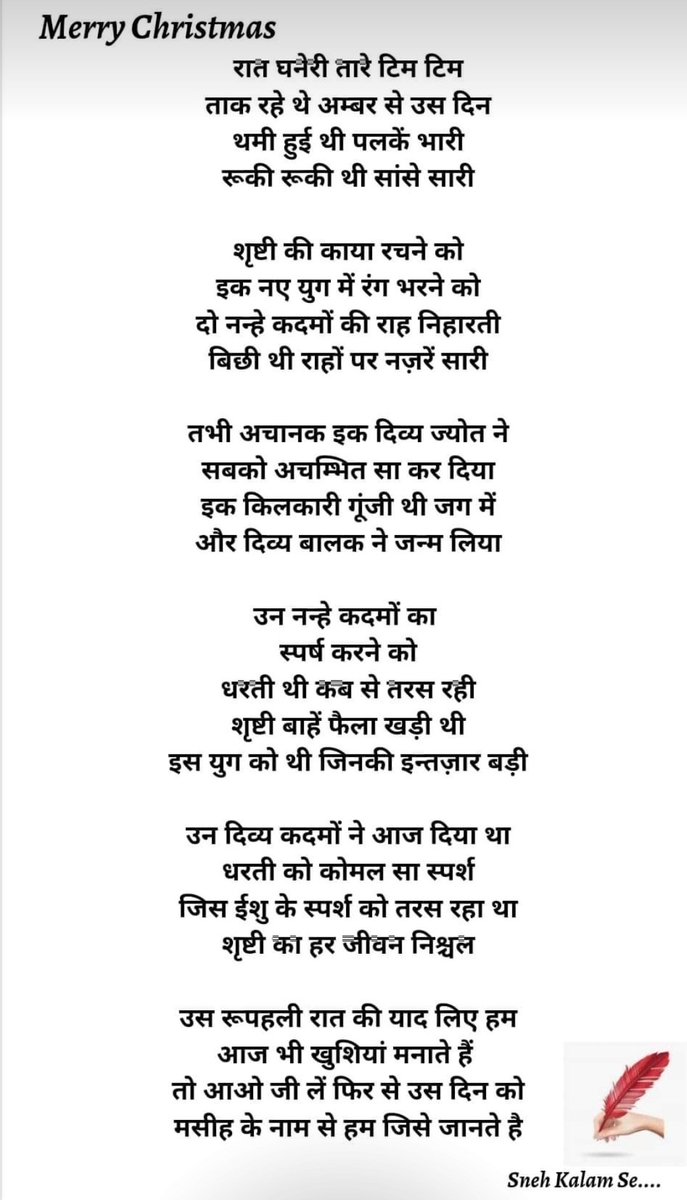 Merry Christmas
रात घनेरी तारे टिम टिम
ताक रहे थे अम्बर से उस दिन
थमी हुई थी पलकें भारी
रूकी रूकी थी सांसे सारी
शृष्टी की काया रचने को
इक नए युग में रंग भरने को
दो नन्हे कदमों की राह निहारती
बिछी थी राहों पर नज़रें सारी
तभी अचानक इक दिव्य ज्योत ने
सबको अचम्भित सा कर दिया
इक किलकारी गूंजी थी जग में
और दिव्य बालक ने जन्म लिया
उन नन्हे कदमों का
स्पर्ष करने को
धरती थी कब से तरस रही
शृष्टी बाहें फैला खड़ी थी
इस युग को थी जिनकी इन्तज़ार बड़ी
उन दिव्य कदमों ने आज दिया था
धरती को कोमल सा स्पर्श
जिस ईशु के स्पर्श को तरस रहा था
शृष्टी का हर जीवन निश्चल
उस रूपहली रात की याद लिए हम
आज भी खुशियां मनाते हैं
तो आओ जी लें फिर से उस दिन को
मसीह के नाम से हम जिसे जानते है
Sneh Kalam Se....